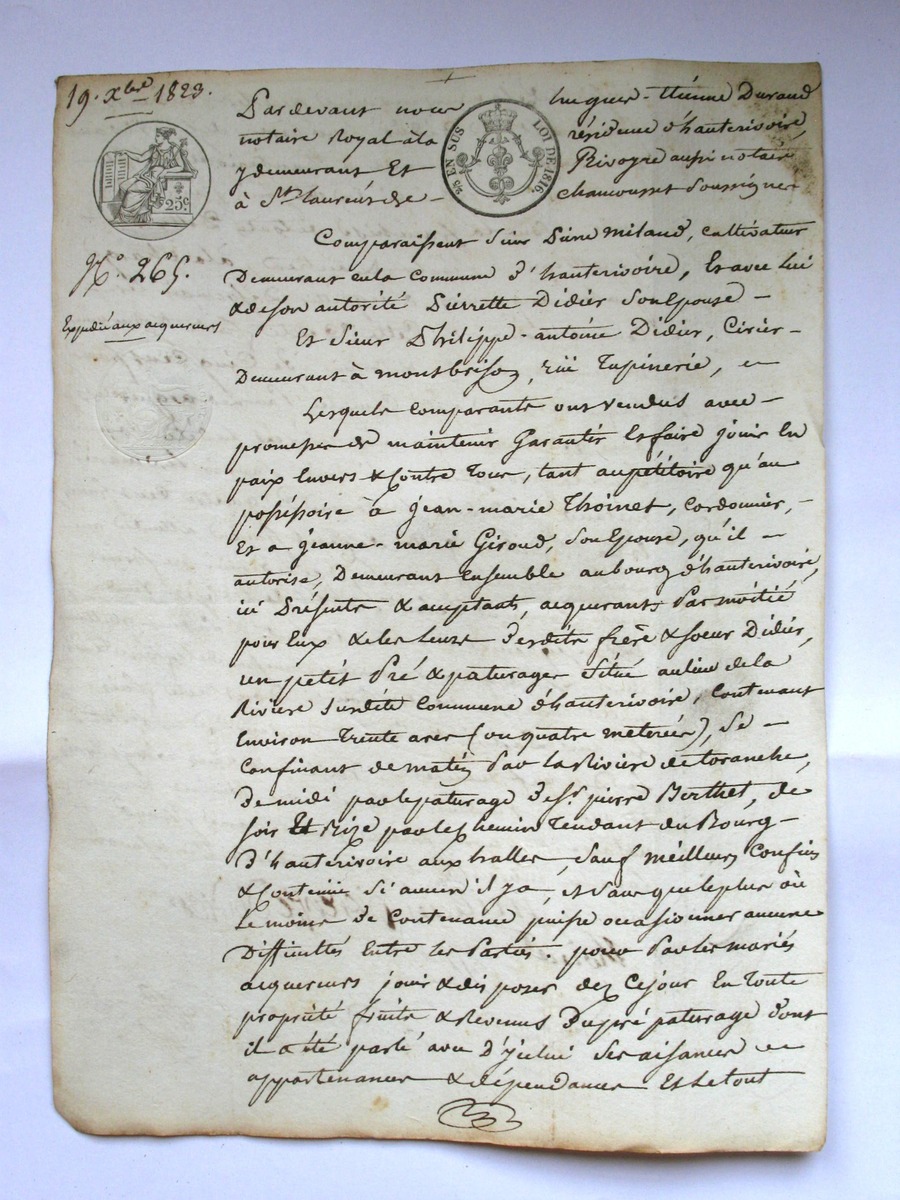 19. Xbre 1823.
25c
N° 265.
Expédié aux acquereurs
25 EN SUS LOI DE 1816.
Pardevant nous hugues-Etienne Durand
notaire Royal à la résidence d'hauterivoire,
y demeurant Et Rivoyre aussi notaire
à St. laurent de - chamousset Soussignés
Comparaissent Sieur Pierre milaud, cultivateur
Demeurant en la Commune d'hauterivoire, Et avec lui
& de son autorité Pierrette Didier Son Epouse -
Et Sieur Philippe-antoine Didier, Cirier -
Demeurant à montbrison, rüe Tupinerie,
Lesquels comparants ont vendus avec -
promesse de maintenir Garantir Et faire jouir En
paix Envers & Contre Tous, tant au pétitoire qu'au
possessoire à jean-marie Thoinet, cordonnier, -
Et a jeanne-marie Giroud, Son Epouse, qu'il -
autorise, Demeurant Ensemble au bourg d'hauterivoire,
ici Présents & acceptants, acquerants Par moitié
pour Eux & les leurs Desdits frère & soeur Didier,
un petit Pré & paturage Situé au lieu de la
Rivière Surdite Commune d'hauterivoire, Contenant
Environ Trente ares (ou quatre méterées), Se -
Confinant de matin Par la Rivière de toranche,
De midi par le paturage De Sr. pierre Berthet, de
soir Et Bize par le Chemin Tendant du Bourg -
D'hauterivoire aux halles, Sauf meilleurs Confins
& Contenue Si aucun il y a, et Sans que le plus ou
Le moins de Contenance puisse occasionner aucune
Difficultés Entre les Parties. pour Par les mariés
acquereurs jouir & disposer dez Ce jour En Toute
propriété fruits & Revenus Du pré paturage dont
il a été parlé avec D'ycelui Ses aisances
appartenances & dépendances Et Le tout